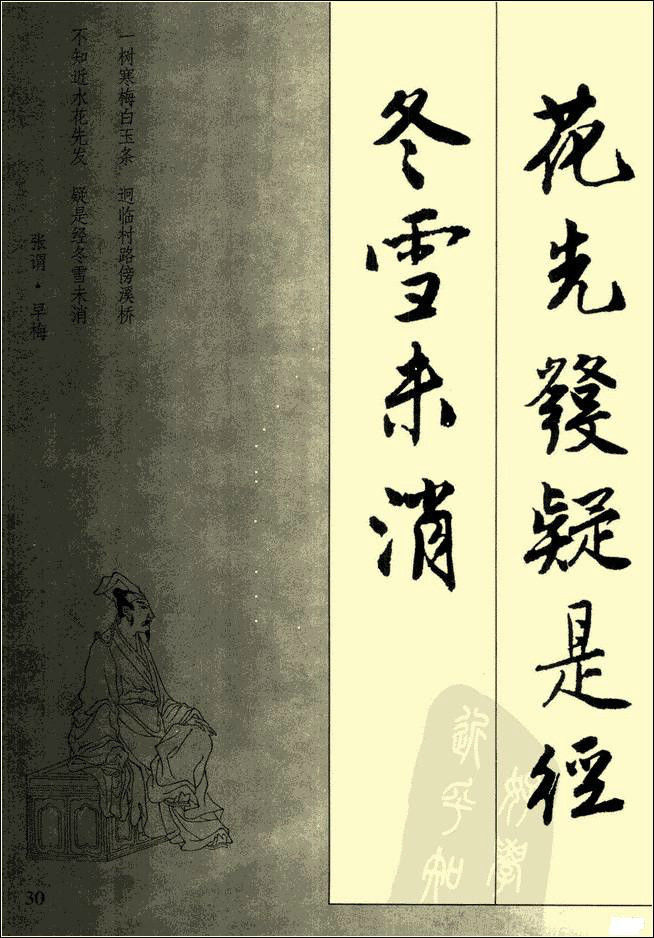 花先發疑是經
冬雪未消
好學
近乎知
一树寒梅白玉条 迥临村路傍溪桥
不知近水花先发 疑是经冬雪未消
张谓·早梅
30